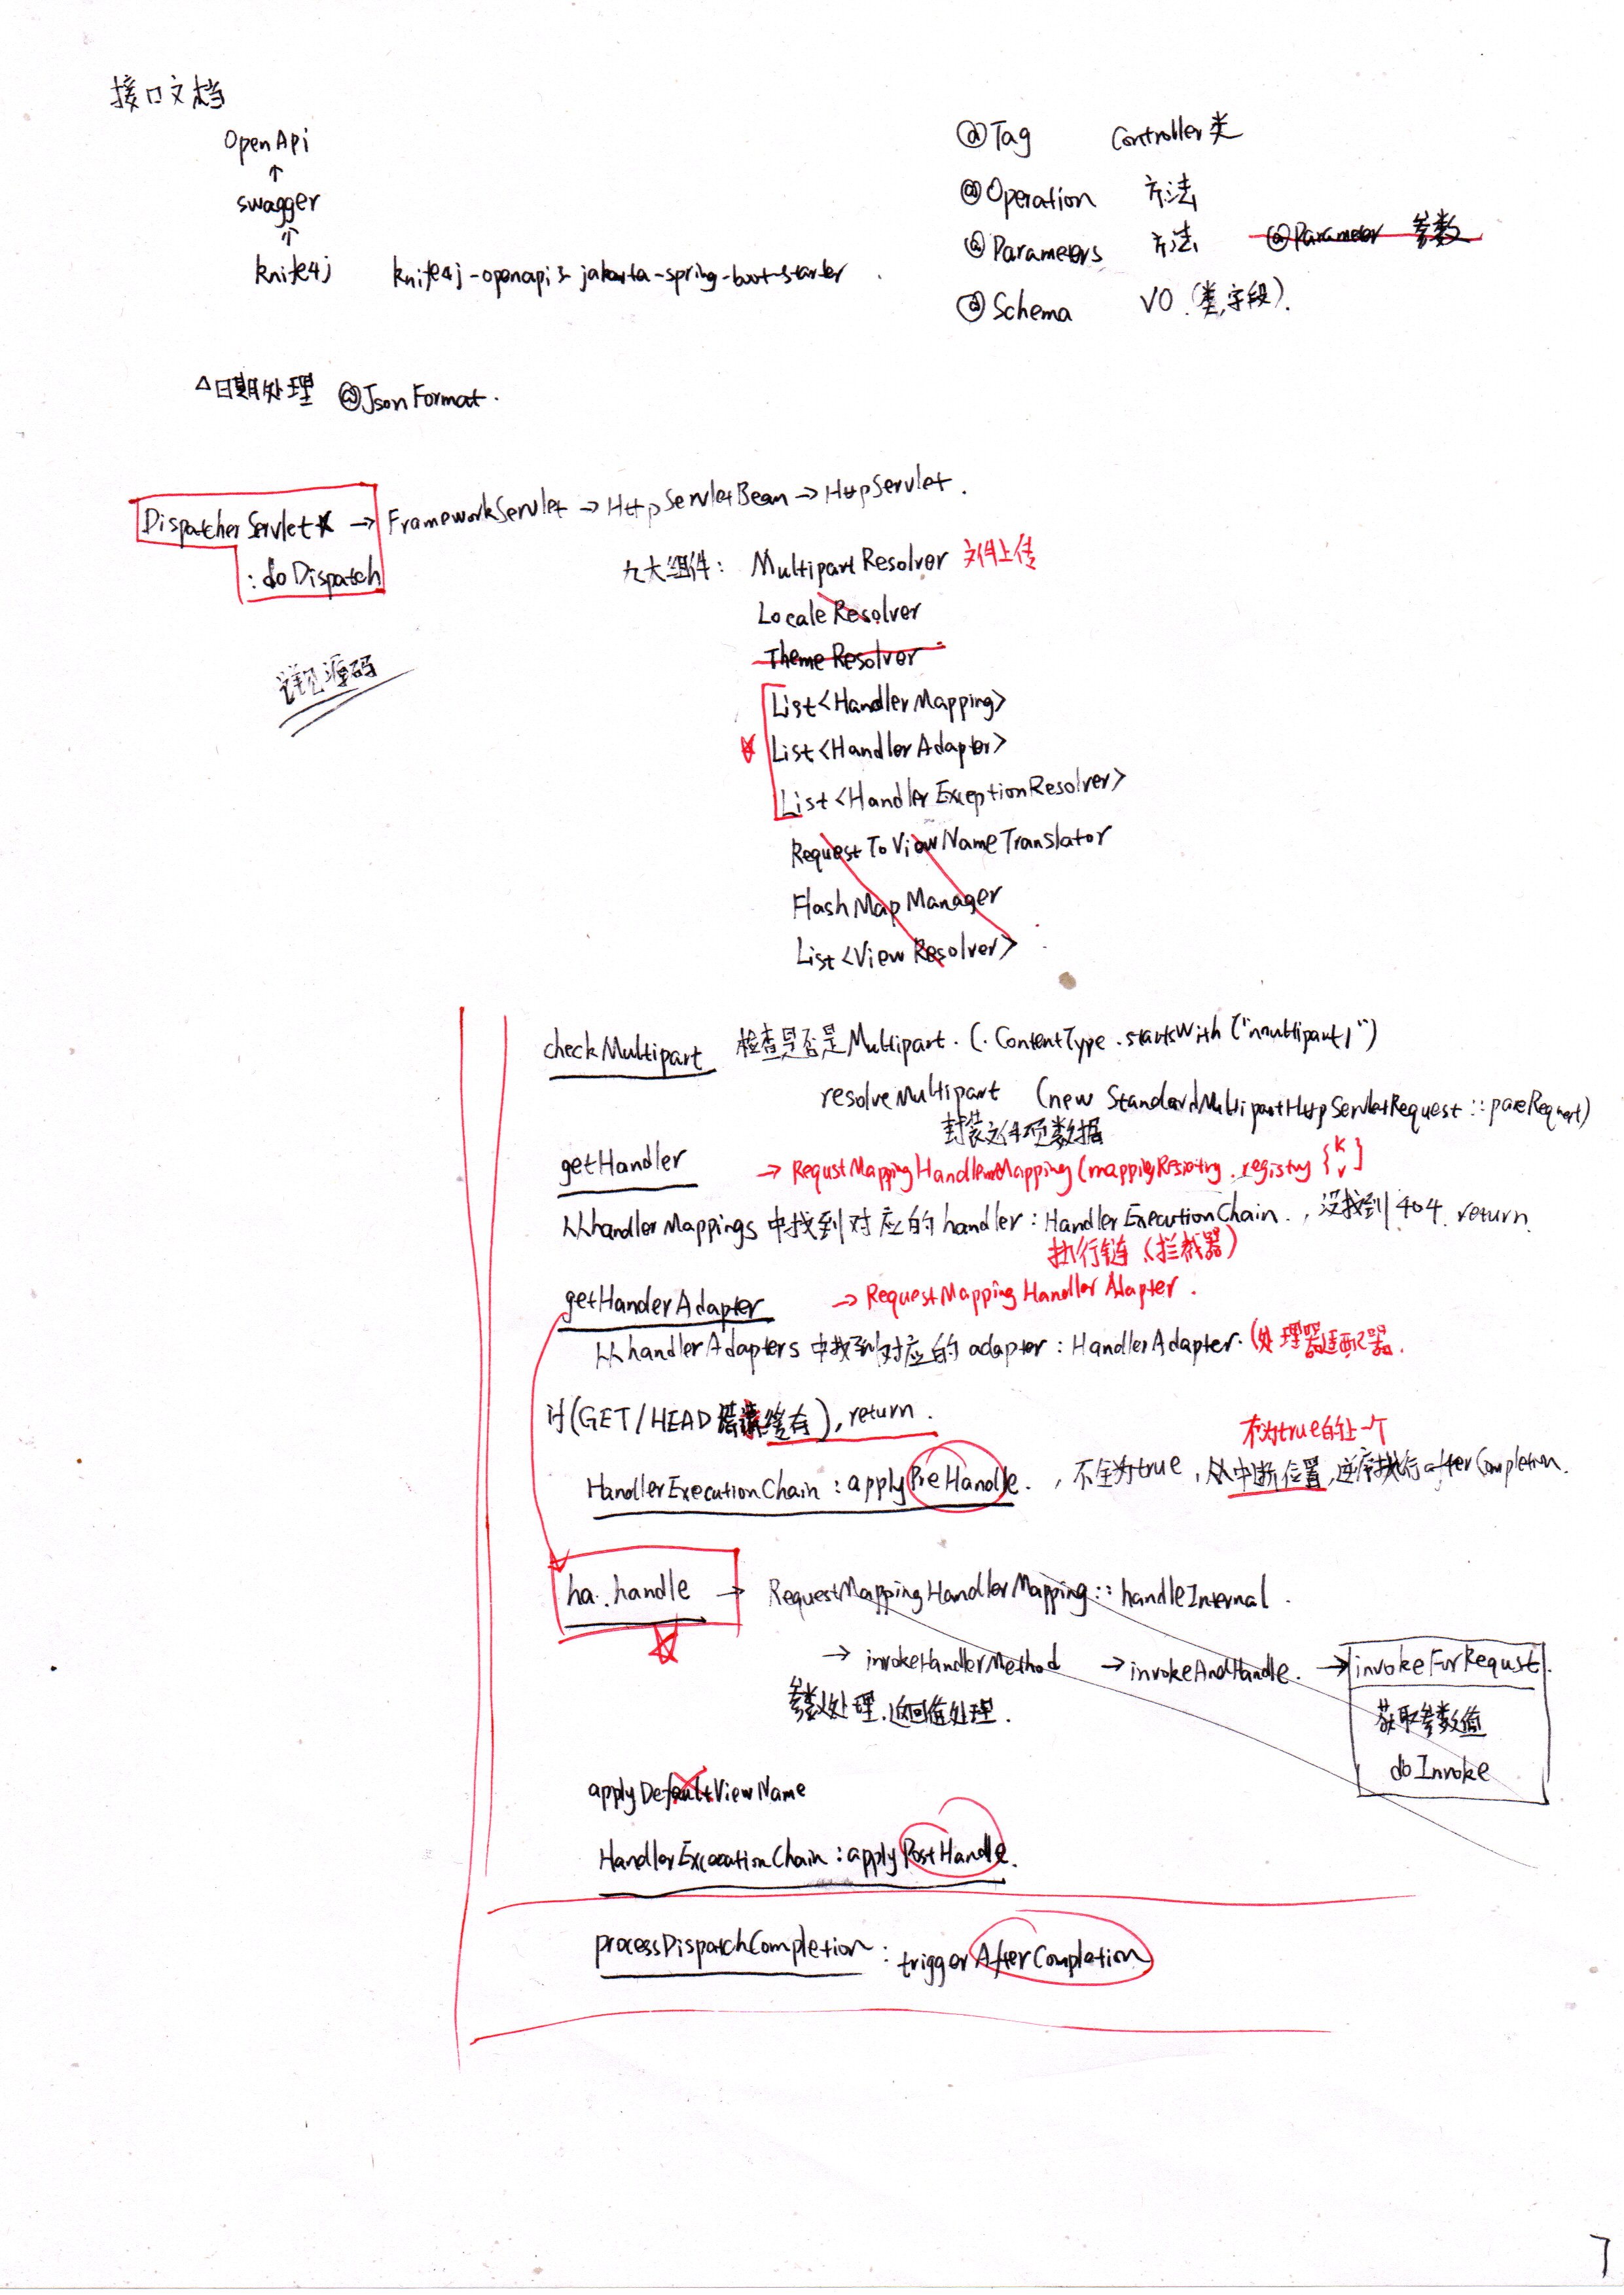 接口文档
OpenApi
↑
swagger
↑
knife4j knife4j-openapi3-jakarta-spring-boot-starter
@Tag Controller类
@Operation 方法
@Parameters 方法 @Parameter 参数
@Schema VO (类,字段).
△日期处理 @JsonFormat.
DispatcherServlet → FrameworkServlet → HttpServletBean → HttpServlet.
:doDispatch
详见源码
九大组件: MultipartResolver 文件上传
LocaleResolver
ThemeResolver
List<HandlerMapping>
List<HandlerAdapter>
List<HandlerExceptionResolver>
RequestToViewNameTranslator
FlashMapManager
List<ViewResolver>
checkMultipart 检查是否是Multipart. (.ContentType.startsWith("multipart/")
resolveMultipart (new StandardMultipartHttpServletRequest::parseRequest)
封装文件项数据
getHandler → RequstMappingHandlerMapping (mappingRegistry.registry {k v}
从handlerMappings 中找到对应的handler: HandlerExecutionChain., 没找到404. return.
执行链 (拦截器)
getHanderAdapter → RequestMappingHandlerAdapter.
从handlerAdapters 中找到对应的adapter: HandlerAdapter. (处理器适配器.
if (GET/HEAD 缓存), return.
不为true的上一个
HandlerExecutionChain: applyPreHandle., 不全为true, 从中断位置,逆序执行afterCompletion.
ha.handle → RequestMappingHandlerMapping:: handleInternal.
→ invokeHandlerMethod → invokeAndHandle. → invokeForRequst.
参数处理.返回值处理.
获取参数值
doInvoke
applyDefaultViewName
HandlerExecutionChain: applyPostHandle.
processDispatchCompletion: triggerAfterCompletion
7